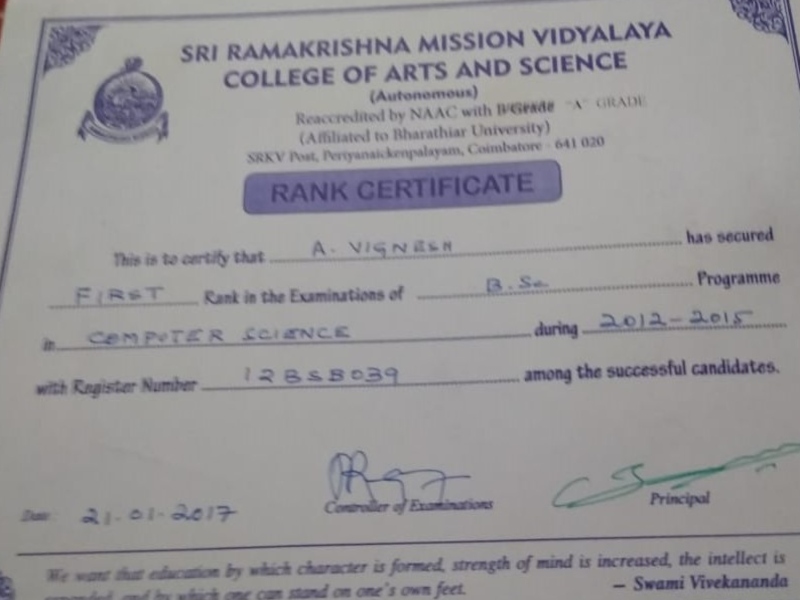 SRI RAMAKRISHNA MISSION VIDYALAYA
COLLEGE OF ARTS AND SCIENCE
(Autonomous)
Reaccredited by NAAC with "A" GRADE
(Affiliated to Bharathiar University)
SRKV Post, Periyanaickenpalayam, Coimbatore - 641 020
RANK CERTIFICATE
This is to certify that A. VIGNESH has secured
FIRST Rank in the Examinations of B.Sc Programme
in COMPUTER SCIENCE during 2012-2015
with Register Number 12BSB039 among the successful candidates.
Date: 21.01.2017
Controller of Examinations
Principal
We want that education by which character is formed, strength of mind is increased, the intellect is
expanded, and by which one can stand on one's own feet.
– Swami Vivekananda